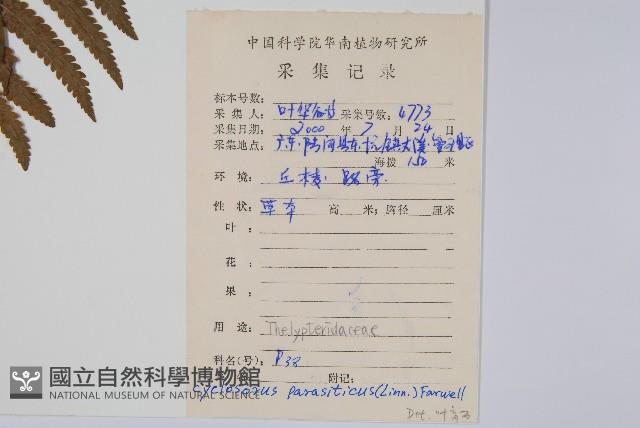 中国科学院华南植物研究所
采集记录
标本号数:
采集人: 叶华谷 采集号数: 4773
采集日期: 2000 年 7 月 24 日
采集地点: 广东·陆河县东坑镇大溪
海拔 150 米
环境: 丘陵·路旁
性状: 草本 高 米; 胸径 厘米
叶:
花:
果:
用途: Thelypteridaceae
科名(号): P38
國立自然科學博物館
附记:
NATIONAL MUSEUM OF NATURAL SCIENCE
Cyclosorus parasiticus (Linn.) Farwell
Det. 叶